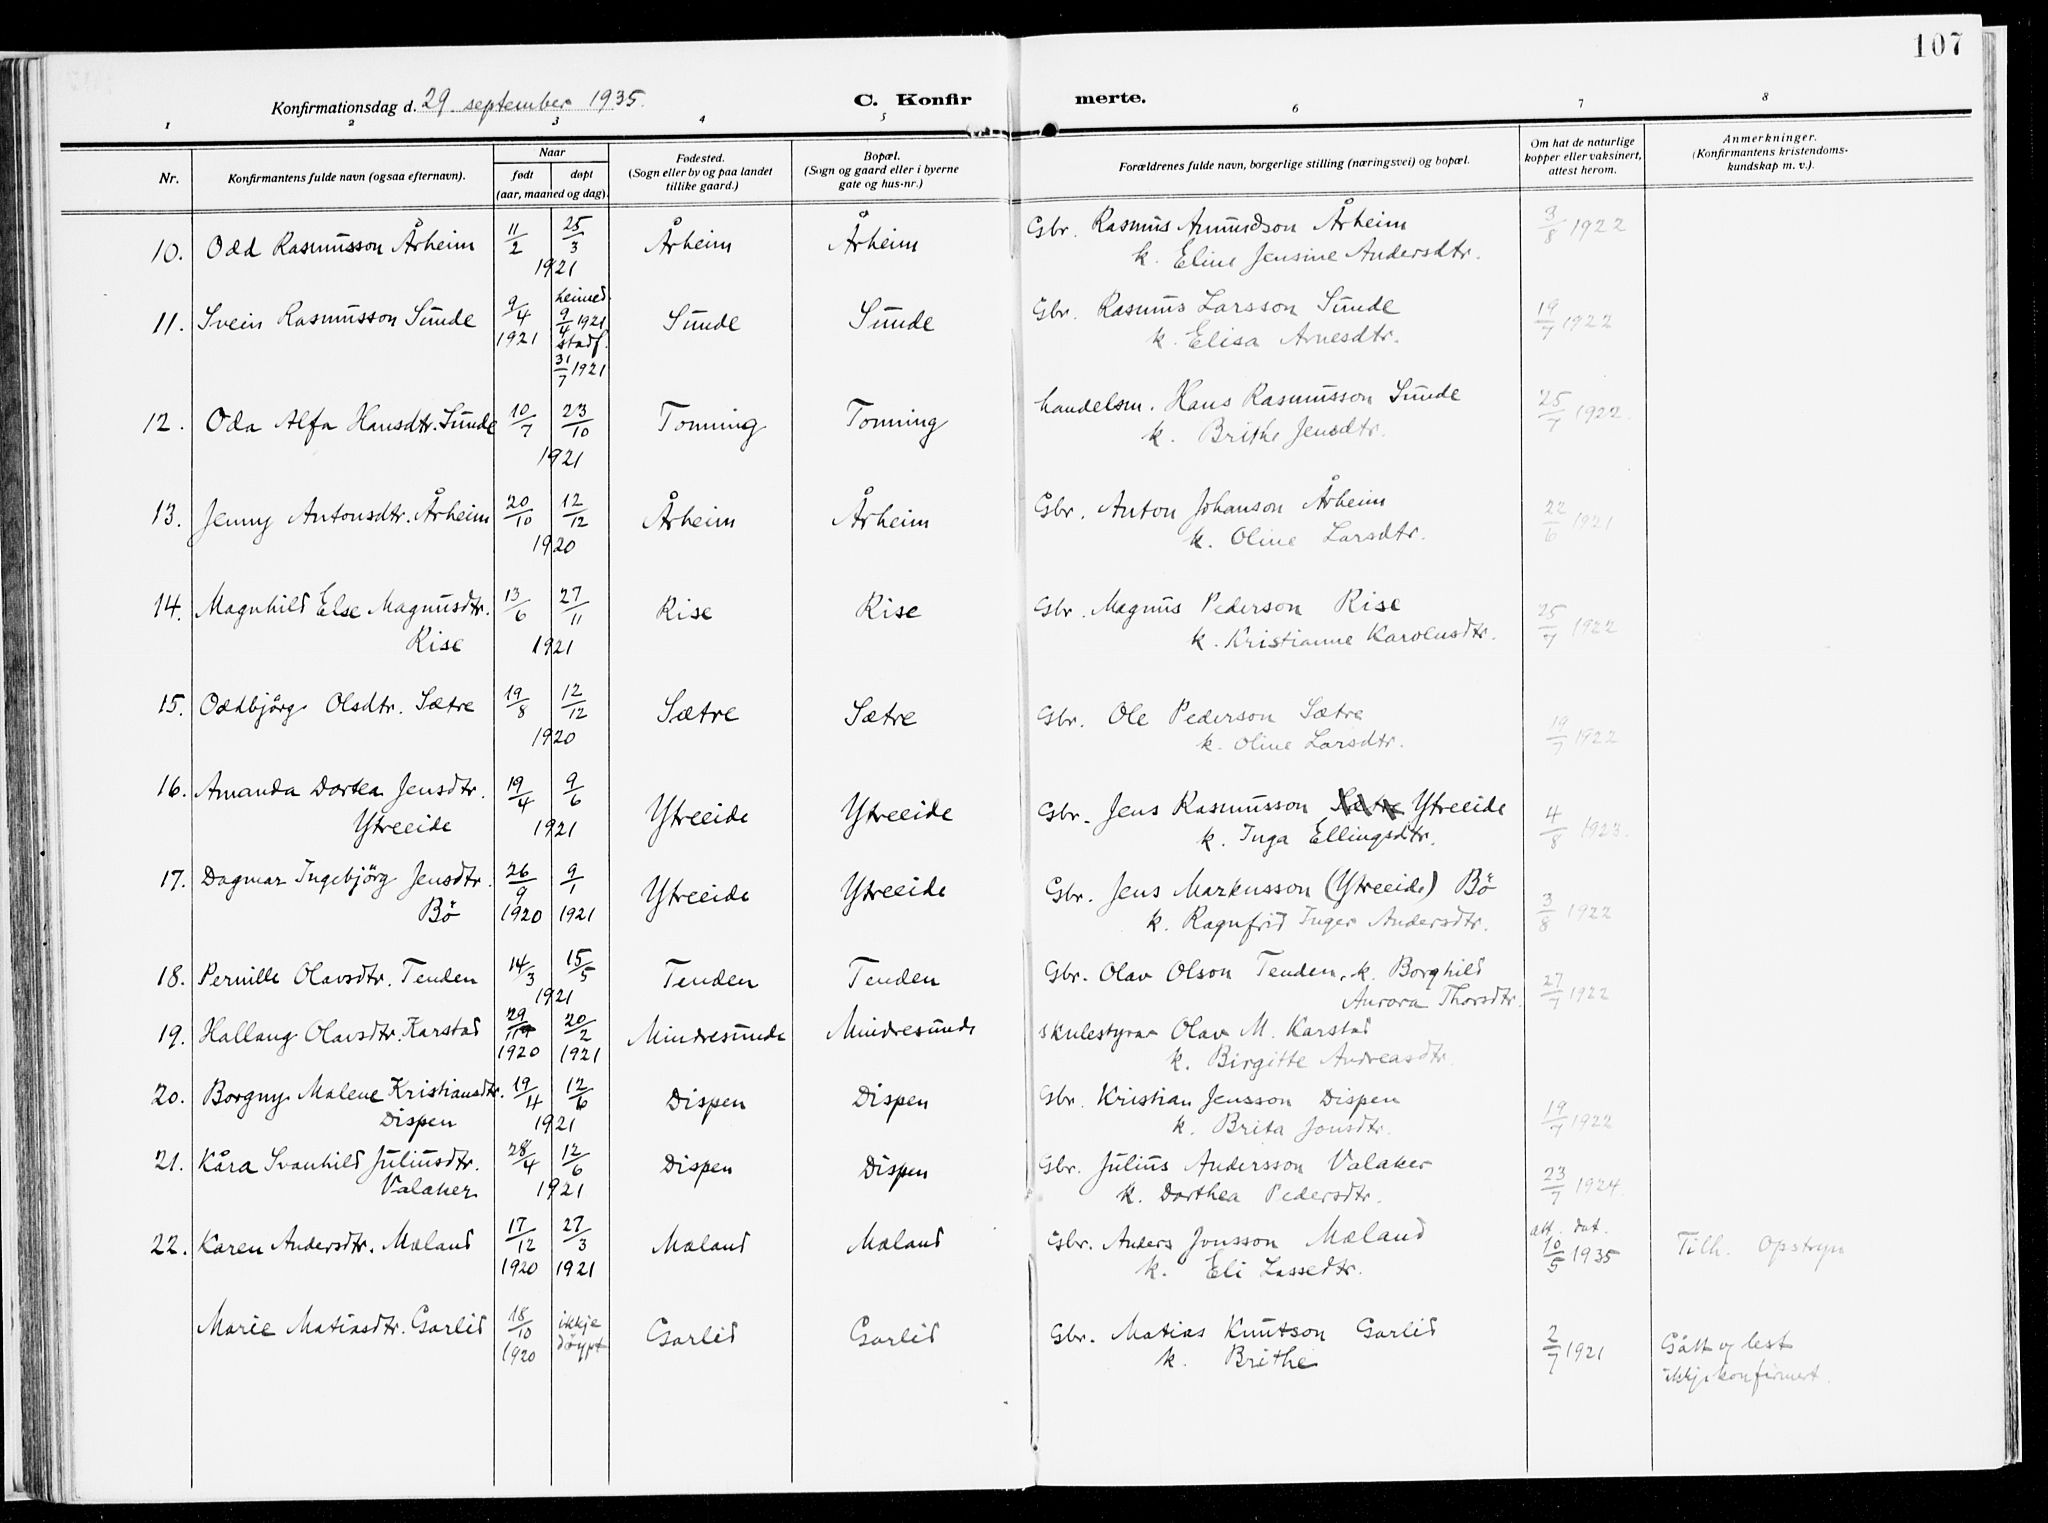 107
Konfirmationsdag d. 29. september 1935.
C. Konfirmerte.
1 2 3 4 5 6 7 8
Nr.
Konfirmantens fulde navn (ogsaa efternavn).
Naar
født døpt
(aar, maaned og dag).
Fødested.
(Sogn eller by og paa landet
tillike gaard.)
Bopæl.
(Sogn og gaard eller i byerne
gate og hus-nr.)
Forældrenes fulde navn, borgerlige stilling (næringsvei) og bopæl.
Om hat de naturlige
kopper eller vaksinert,
attest herom.
Anmerkninger.
(Konfirmantens kristendoms-
kundskap m. v.).
10. Odd Rasmusson Årheim 11/2 25/3 Årheim Årheim Gbr. Rasmus Amundson Årheim 3/8 1922
1921 k. Eline Jensine Andersdtr.
11. Svein Rasmusson Sunde 9/4 1921 heimed. 9/4 1921 stadf. 31/7 1921 Sunde Sunde Gbr. Rasmus Larsson Sunde 19/7 1922
k. Elisa Arnesdtr.
12. Oda Alfa Hansdtr. Sunde 10/7 23/10 Tonning Tonning handelsm. Hans Rasmusson Sunde 25/7 1922.
1921 k. Brithe Jensdtr.
13. Jenny Antonsdtr. Årheim 20/10 12/12 Årheim Årheim Gbr. Anton Johanson Årheim 22/6 1921
1920 k. Oline Larsdtr.
14. Magnhild Else Magnusdtr. 13/6 27/11 Rise Rise Gbr. Magnus Pederson Rise 25/7 1922
Rise 1921 k. Kristianne Karolusdtr.
15. Oddbjørg Olsdtr. Sætre 19/8 12/12 Sætre Sætre Gbr. Ole Pederson Sætre 19/7 1922
1920 k. Oline Larsdtr.
16. Amanda Dortea Jensdtr. 19/4 9/6 Ytreeide Ytreeide Gbr. Jens Rasmusson Sætre Ytreeide 4/8 1923.
Ytreeide 1921 k. Inga Ellingsdtr.
17. Dagmar Ingebjörg Jensdtr. 26/9 9/1 Ytreeide Ytreeide Gbr. Jens Markusson (Ytreeide) Bö 3/8 1922
Bö 1920 1921 k. Ragnfrid Inger Andersdtr.
18. Pernille Olavsdtr. Tenden 14/3 15/5 Tenden Tenden Gbr. Olav Olson Tenden, k. Borghild 27/7 1922
1921 Aurora Thorsdtr.
19. Hallaug Olavsdtr. Karstad 29/11 20/2 Mindresunde Mindresunde skulestyrar Olav M. Karstad
1920 1921 k. Birgitte Andreasdtr.
20. Borgny Malene Kristiansdtr. 19/4 12/6 Dispen Dispen Gbr. Kristian Jensson Dispen 19/7 1922
Dispen 1921 k. Brita Jonsdtr.
21. Kåra Svanhild Juliusdtr. 28/4 12/6 Dispen Dispen Gbr. Julius Andersson Valaker 23/7 1924.
Valaker 1921 k. Dorthea Pedersdtr.
22. Karen Andersdtr. Mæland 17/12 27/3 Mæland Mæland Gbr. Anders Jonsson Mæland att. dat. 10/5 1935 Tilh. Opstryn
1920 1921 k. Eli Lassedtr.
Marie Matiasdtr. Garlid 18/10 1920 ikkje döypt Garlid Garlid Gbr. Matias Knutson Garlid 2/7 1921 Gått og lest
k. Brithe ikkje konfirmert.